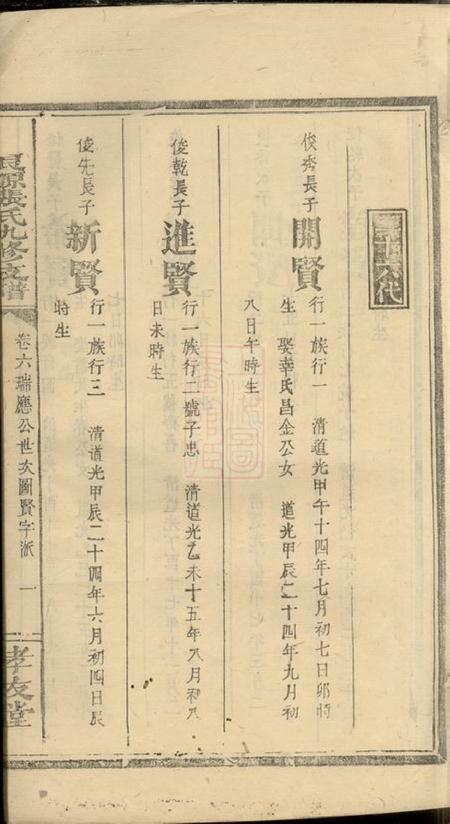 六代
俊秀長子
開賢
行一族行一 清道光甲午十四年七月初七日卯時
生 娶幸氏昌金公女 道光甲辰二十四年九月初
八日午時生
俊乾長子
進賢
行一族行二號子忠 清道光乙未十五年八月初八
日未時生
俊先長子
新賢
行一族行三 清道光甲辰二十四年六月初四日辰
時生
源張氏九修支譜
卷六瑞應公世次圖賢字派 一
孝友堂